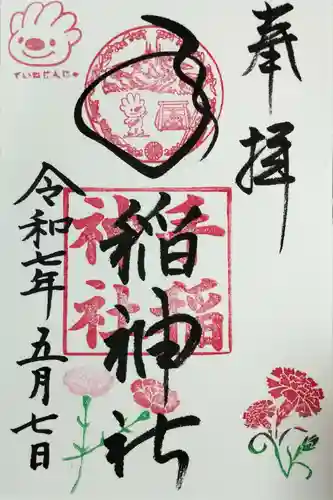 奉拝
手稲神社
手稲神社
令和七年五月七日
ていねじんじゃ